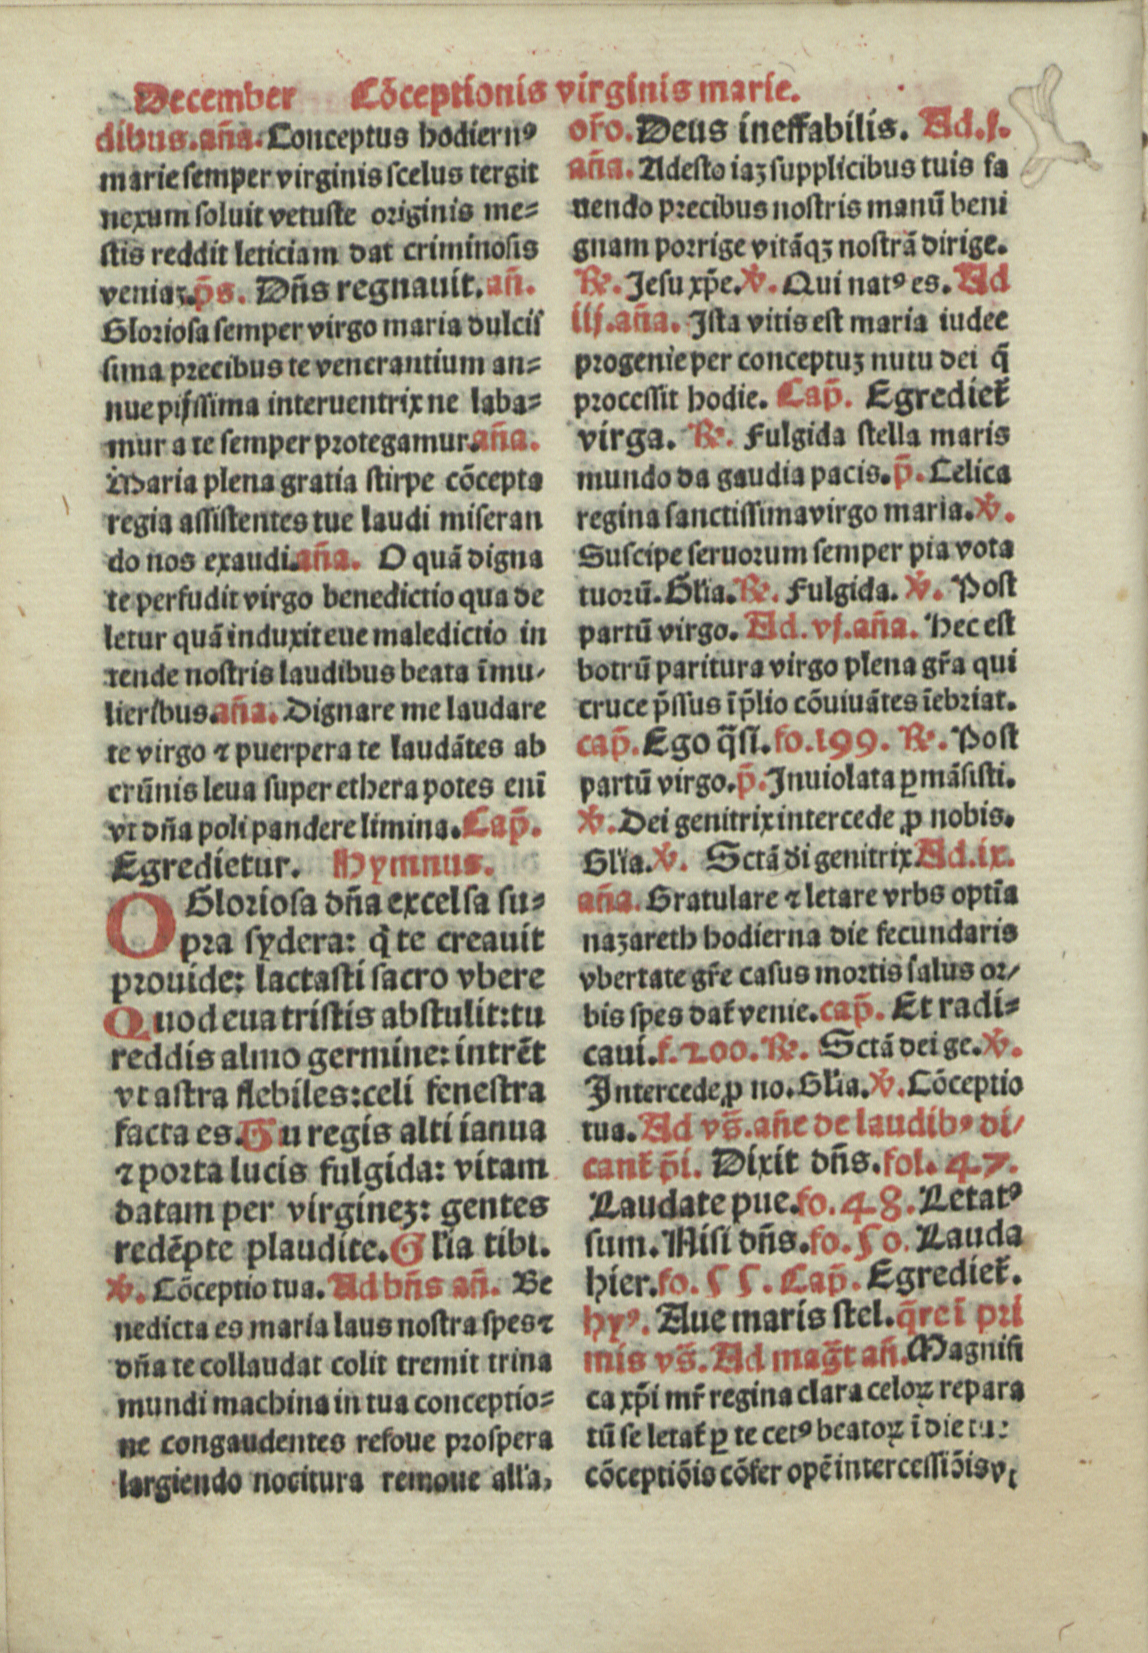 December Cōceptionis virginis marie.
dibus.aña.Conceptus hodiernꝰ
marie semper virginis scelus tergit
nexum soluit vetuste originis me⸗
stis reddit leticiam dat criminosis
veniaꝫ.p̄s. Dñs regnauit.añ.
Gloriosa semper virgo maria dulcis
sima precibus te venerantium an⸗
nue pijssima interuentrix ne laba⸗
mur a te semper protegamur.aña.
Maria plena gratia stirpe cōcepta
regia assistentes tue laudi miseran
do nos exaudi.aña. O quā digna
te perfudit virgo benedictio qua de
letur quā induxit eue maledictio in
tende nostris laudibus beata ī mu/
lieribus.aña. Dignare me laudare
te virgo ⁊ puerpera te laudātes ab
erūnis leua super ethera potes enī
vt dña poli pandere limina.Cap̄.
Egredietur. Hymnus.
O Gloriosa dña excelsa su⸗
pra sydera: q̄ te creauit
prouide: lactasti sacro vbere
Quod eua tristis abstulit:tu
reddis almo germine: intrēt
vt astra flebiles:celi fenestra
facta es.Tu regis alti ianua
⁊ porta lucis fulgida: vitam
datam per virgineꝫ: gentes
redēpte plaudite.Glīa tibi.
℣. Cōceptio tua. Ad bñs añ. Be
nedicta es maria laus nostra spes ⁊
dña te collaudat colit tremit trina
mundi machina in tua conceptio⸗
ne congaudentes refoue prospera
largiendo nocitura remoue alla,
oŕo.Deus ineffabilis. Ad.j.
aña. Adesto iaꝫ supplicibus tuis fa
uendo precibus nostris manū beni
gnam porrige vitāqꝫ nostrā dirige.
℟. Jesu xp̄e.℣. Qui natꝰ es. Ad
iij.aña. Ista vitis est maria iudee
progenie per conceptuꝫ nutu dei q̄
processit hodie. Cap̄. Egredieť
virga. ℟. Fulgida stella maris
mundo da gaudia pacis.p̄. Celica
regina sanctissima virgo maria.℣.
Suscipe seruorum semper pia vota
tuorū. Glīa.℟. Fulgida. ℣. Post
partū virgo. Ad.vj.aña. Hec est
botrū paritura virgo plena gŕa qui
cruce p̄ssus ī p̄lio cōuiuātes īebriat.
cap̄.Ego q̄si.fo.199. ℟. Post
partū virgo.p̄.Inuiolata ꝑmāsisti.
℣. Dei genitrix intercede ꝓ nobis.
Glīa.℣. Sctā di genitrix Ad.ix.
aña. Gratulare ⁊ letare vrbs optīa
nazareth hodierna die fecundaris
vbertate gŕe casus mortis salus or/
bis spes dať venie.cap̄. Et radi⸗
caui.f.200.℟. Sctā dei ge.℣.
Intercede ꝓ no. Glīa.℣. Cōceptio
tua. Ad vs̄.añe de laudibꝰ di/
canť p̄i. Dixit dñs.fol. 47.
Laudate pue.fo.48. Letatꝰ
sum. Nisi dñs.fo.50. Lauda
hier.fo.55. Cap̄. Egredieť.
hyꝰ. Aue maris stel.q̄re ī pri
mis vs̄. Ad mag̅t añ.Magnifi
ca xp̄i mŕ regina clara celoꝝ repara
tū se letať ꝑ te cetꝰ beatoꝝ ī die tue
cōceptiōis cōfer opē intercessiōis vt